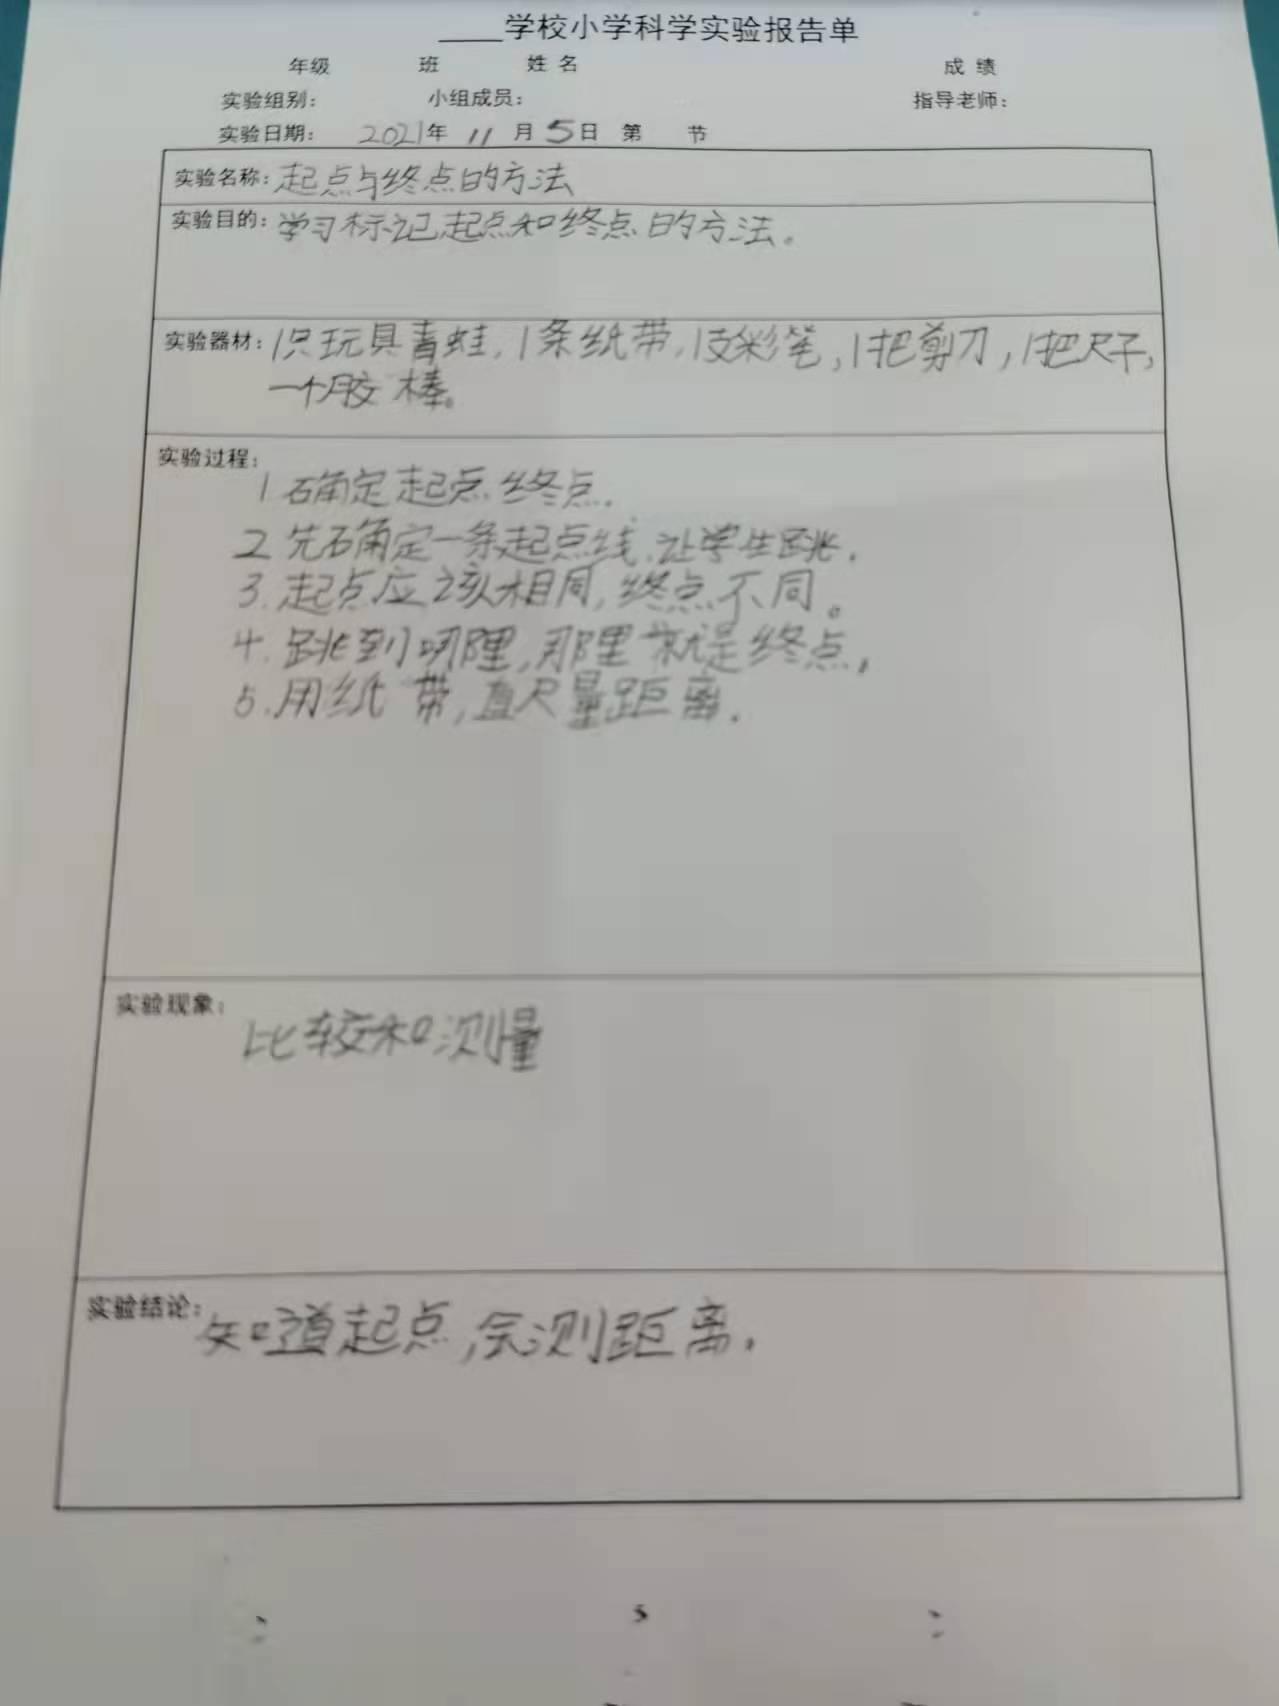 ____学校小学科学实验报告单
年级 班 姓名 成绩
实验组别： 小组成员： 指导老师：
实验日期： 2021年 11 月 5日 第 节
实验名称：起点与终点的方法
实验目的：学习标记起点和终点的方法。
实验器材：1只玩具青蛙，1条纸带，1支彩笔，1把剪刀，1把尺子，
一个胶棒。
实验过程：
1 确定起点 终点.
2 先确定一条起点线，让学生跳.
3. 起点应该相同，终点不同。
4. 跳到哪里，那里就是终点，
5. 用纸带，直尺量距离.
实验现象：
比较和测量
实验结论：知道起点，会测距离.
5